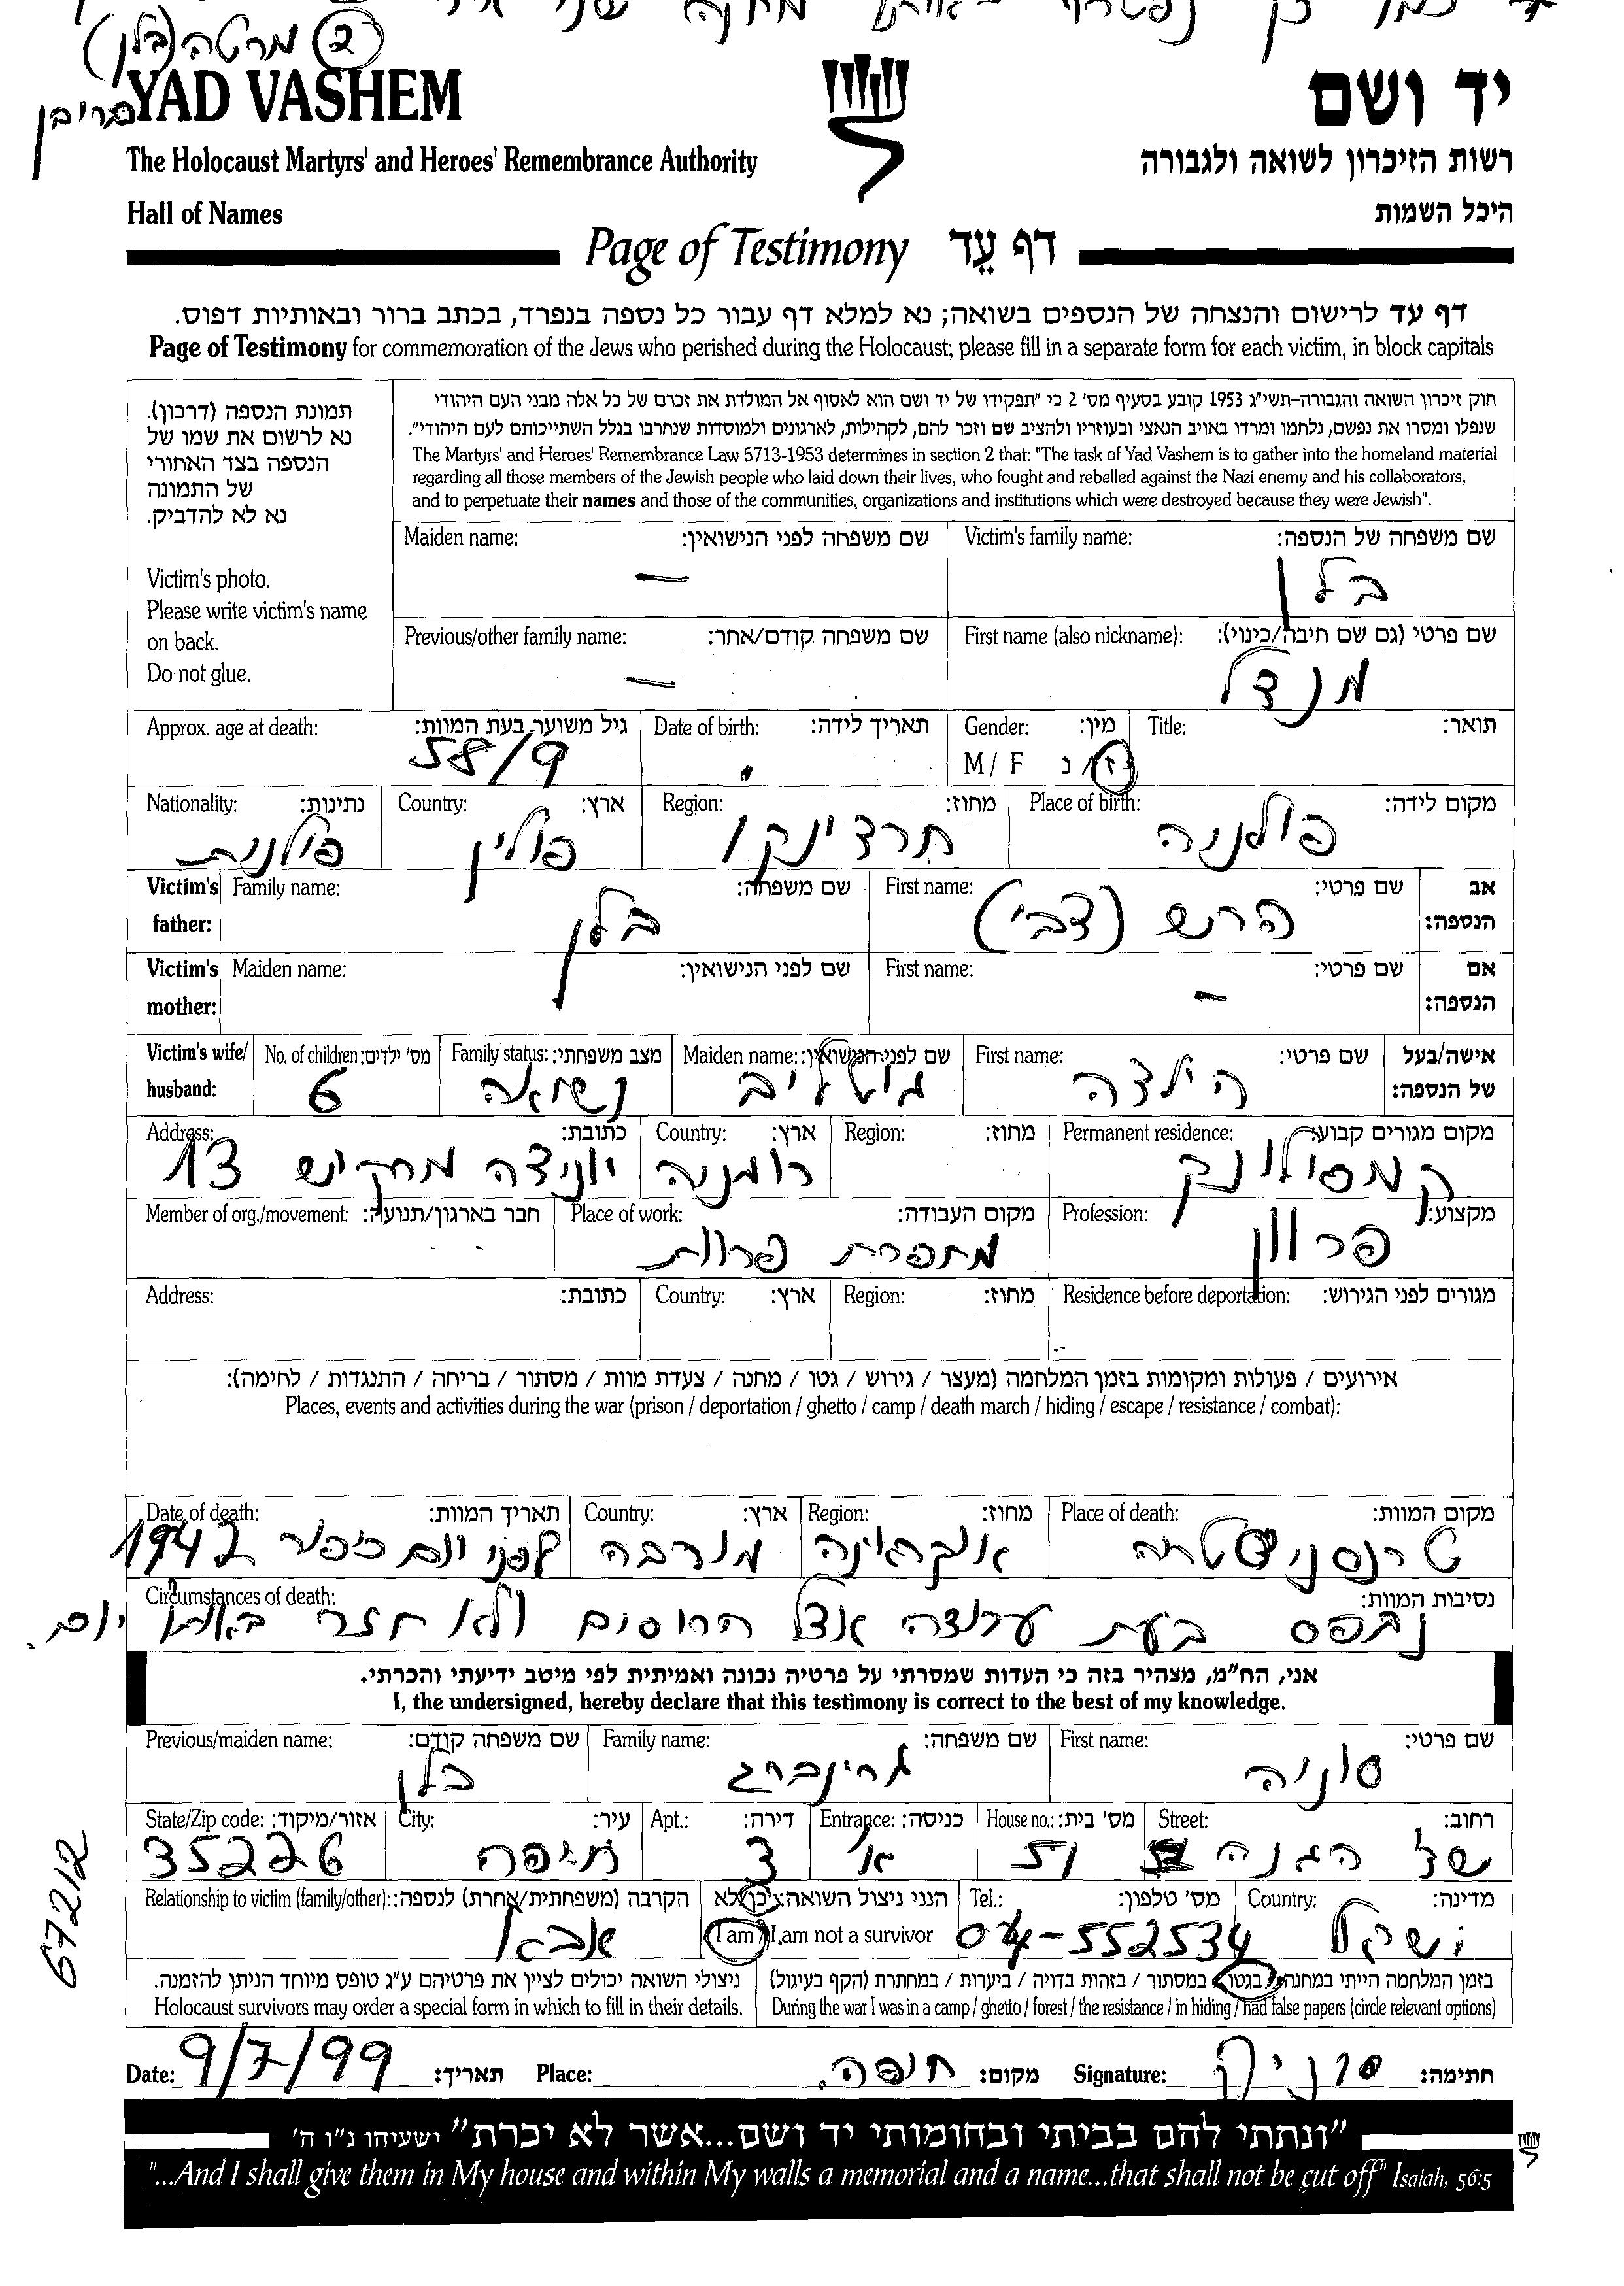 ② מרטה (בלן)
YAD VASHEM
יד ושם
The Holocaust Martyrs' and Heroes' Remembrance Authority
רשות הזיכרון לשואה ולגבורה
Hall of Names
היכל השמות
Page of Testimony דף עֵד
דף עד לרישום והנצחה של הנספים בשואה; נא למלא דף עבור כל נספה בנפרד, בכתב ברור ובאותיות דפוס.
Page of Testimony for commemoration of the Jews who perished during the Holocaust; please fill in a separate form for each victim, in block capitals
תמונת הנספה (דרכון).
נא לרשום את שמו של
הנספה בצד האחורי
של התמונה
נא לא להדביק.
Victim's photo.
Please write victim's name
on back.
Do not glue.
חוק זיכרון השואה והגבורה-תשי"ג 1953 קובע בסעיף מס' 2 כי "תפקידו של יד ושם הוא לאסוף אל המולדת את זכרם של כל אלה מבני העם היהודי
שנפלו ומסרו את נפשם, נלחמו ומרדו באויב הנאצי ובעוזריו ולהציב שם וזכר להם, לקהילות, לארגונים ולמוסדות שנחרבו בגלל השתייכותם לעם היהודי".
The Martyrs' and Heroes' Remembrance Law 5713-1953 determines in section 2 that: "The task of Yad Vashem is to gather into the homeland material
regarding all those members of the Jewish people who laid down their lives, who fought and rebelled against the Nazi enemy and his collaborators,
and to perpetuate their names and those of the communities, organizations and institutions which were destroyed because they were Jewish".
Maiden name: שם משפחה לפני הנישואין: Victim's family name: שם משפחה של הנספה:
— בלן
Previous/other family name: שם משפחה קודם/אחר: First name (also nickname): שם פרטי (גם שם חיבה/כינוי):
— מנדל
Approx. age at death: גיל משוער בעת המוות: Date of birth: תאריך לידה: Gender: מין: Title: תואר:
58/9 M / F ז / נ
Nationality: נתינות: Country: ארץ: Region: מחוז: Place of birth: מקום לידה:
פולנית פולין תרדינקו פולניה
Victim's father: Family name: שם משפחה: First name: שם פרטי: אב הנספה:
בלן הרש (צבי)
Victim's mother: Maiden name: שם לפני הנישואין: First name: שם פרטי: אם הנספה:
—
Victim's wife/ husband: No. of children: מס' ילדים: Family status: מצב משפחתי: Maiden name: שם לפני הנישואין: First name: שם פרטי: אישה/בעל של הנספה:
6 נשואה גוטליב הילדה
Address: כתובת: Country: ארץ: Region: מחוז: Permanent residence: מקום מגורים קבוע:
13 רומניה קמפולונג
Member of org./movement: חבר בארגון/תנועה: Place of work: מקום העבודה: Profession: מקצוע:
מתפרת פרוות פרוון
Address: כתובת: Country: ארץ: Region: מחוז: Residence before deportation: מגורים לפני הגירוש:
אירועים / פעולות ומקומות בזמן המלחמה (מעצר / גירוש / גטו / מחנה / צעדת מוות / מסתור / בריחה / התנגדות / לחימה):
Places, events and activities during the war (prison / deportation / ghetto / camp / death march / hiding / escape / resistance / combat):
Date of death: תאריך המוות: Country: ארץ: Region: מחוז: Place of death: מקום המוות:
לפני יום כיפור 1942 אוקראינה טרנסניסטריה
Circumstances of death: נסיבות המוות:
נתפס בעת עבודה אצל הרוסים ולא חזר באותו יום.
אני, הח"מ, מצהיר בזה כי העדות שמסרתי על פרטיה נכונה ואמיתית לפי מיטב ידיעתי והכרתי.
I, the undersigned, hereby declare that this testimony is correct to the best of my knowledge.
Previous/maiden name: שם משפחה קודם: Family name: שם משפחה: First name: שם פרטי:
בלן גרינברג סוניה
State/Zip code: אזור/מיקוד: City: עיר: Apt.: דירה: Entrance: כניסה: House no.: מס' בית: Street: רחוב:
35226 חיפה 3 א' 51 שד' הגנה
Relationship to victim (family/other): הקרבה (משפחתית/אחרת) לנספה: הנני ניצול השואה: כן/לא Tel.: מס' טלפון: Country: מדינה:
אבא I am / I am not a survivor 04-552534 ישראל
ניצולי השואה יכולים לציין את פרטיהם ע"ג טופס מיוחד הניתן להזמנה. בזמן המלחמה הייתי במחנה / בגטו / במסתור / בזהות בדויה / ביערות / במחתרת (הקף בעיגול)
Holocaust survivors may order a special form in which to fill in their details. During the war I was in a camp / ghetto / forest / the resistance / in hiding / had false papers (circle relevant options)
67212
Date: 9/7/99 תאריך: Place: חיפה. מקום: Signature: חתימה:
"ונתתי להם בביתי ובחומותי יד ושם...אשר לא יכרת" ישעיהו נ"ו ה'
"...And I shall give them in My house and within My walls a memorial and a name...that shall not be cut off" Isaiah, 56:5